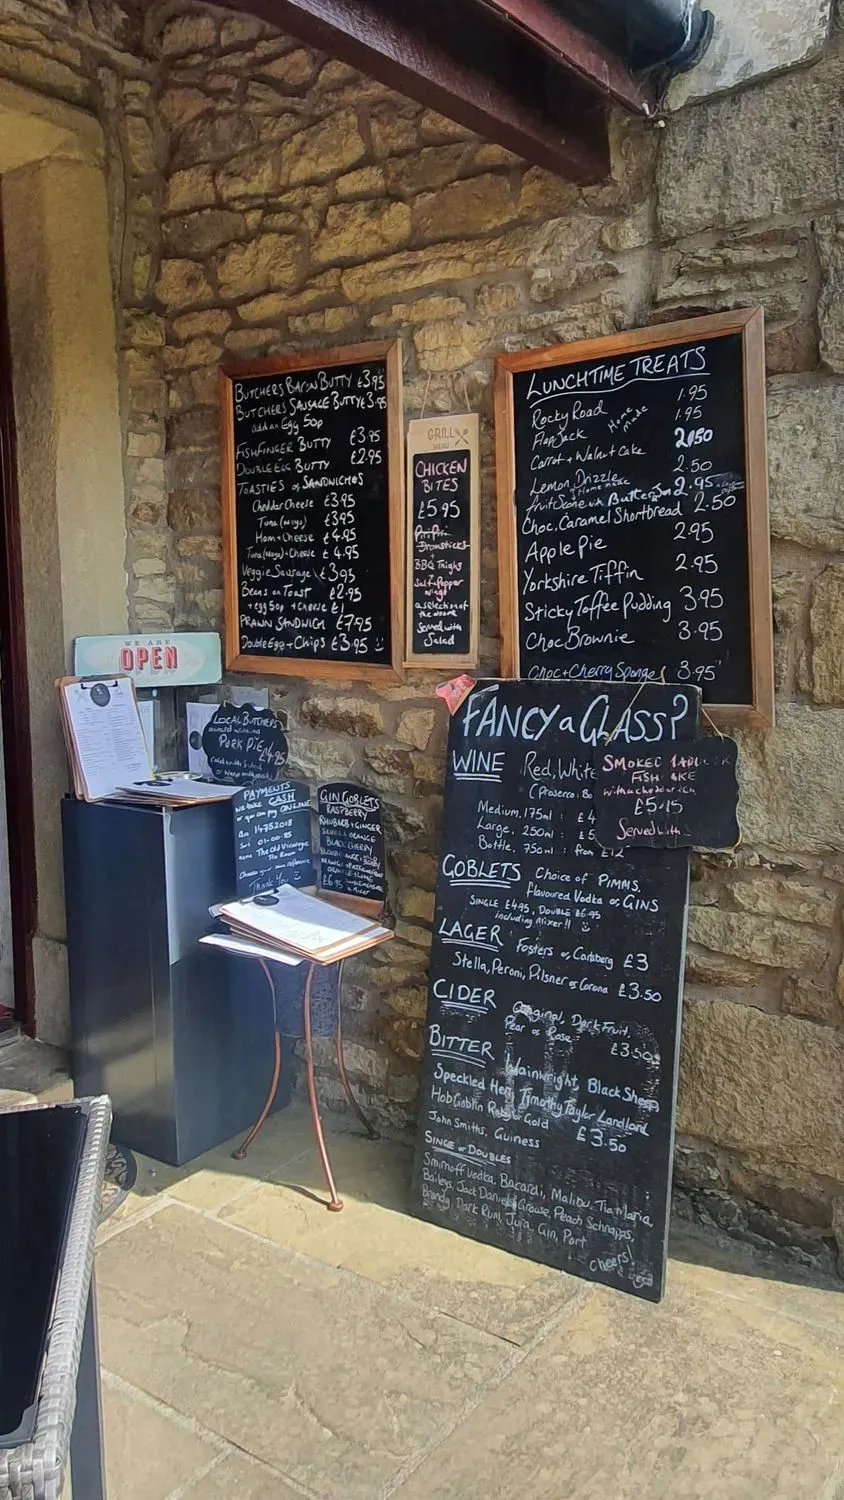 BUTCHERS BACON BUTTY £3.95
BUTCHERS SAUSAGE BUTTY £3.95
add an Egg 50p
FISHFINGER BUTTY £3.95
DOUBLE EGG BUTTY £2.95
TOASTIES or SANDWICHES
Cheddar Cheese £3.95
Tuna (mayo) £3.95
Ham + Cheese £4.95
Tuna (mayo) + Cheese £4.95
Veggie Sausage £3.95
Beans on Toast £2.95
+ egg 50p + CHEESE £1
PRAWN SANDWICH £7.95
Double Egg + Chips £3.95
GRILL
MENU
CHICKEN
BITES
£5.95
Piri Piri
Drumsticks
+
BBQ Thighs
Salt + Pepper
wings
a selection of
the above
Served with
Salad
LUNCHTIME TREATS
Rocky Road 1.95
Flap Jack Home made 1.95
Carrot + Walnut Cake 2.50
Lemon Drizzle 2.50
Fruit Scone with Butter + Jam 2.95
Choc. Caramel Shortbread 2.50
Apple Pie 2.95
Yorkshire Tiffin 2.95
Sticky Toffee Pudding 3.95
Choc Brownie 3.95
Choc + Cherry Sponge 3.95
WE ARE
OPEN
LOCAL BUTCHERS
award winning
PORK PIE
£4.95
PAYMENTS
We take CASH
or you can pay ONLINE
An 14752018
Srt 01-00-85
name The Old Vicarage
Tea Room
Choose your own reference
Thank You
GIN GOBLETS
RASPBERRY
RHUBARB + GINGER
SEVILLE ORANGE
BLACK CHERRY
£6.95
FANCY a GLASS?
WINE Red, White
(Prosecco. Bo
Medium, 175ml : £4
Large, 250ml : £5
Bottle, 750ml : from £12
SMOKED HADDOCK
FISH CAKE
with a cheddar
£5.15
Served with
GOBLETS Choice of PIMMS,
flavoured Vodka or GINS
SINGLE £4.95, DOUBLE £6.95
including Mixer!!
LAGER Fosters or Carlsberg £3
Stella, Peroni, Pilsner or Corona £3.50
CIDER Original, Dark Fruit,
Pear or Rose £3.50
BITTER Wainwright, Black Sheep
Speckled Hen, Timothy Taylor Landlord
HobGoblin Ruby or Gold £3.50
John Smiths, Guiness
SINGLE or DOUBLES
Smirnoff vodka, Bacardi, Malibu, Tia Maria,
Baileys, Jack Daniels, Grouse, Peach Schnapps,
Brandy, Dark Rum, Gin, Port
Cheers!